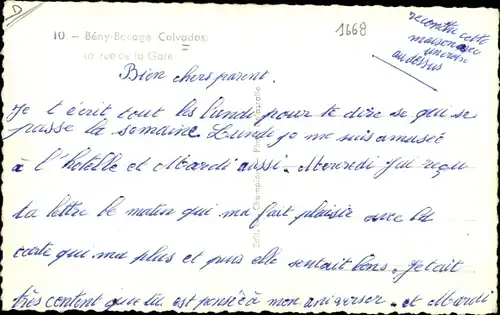 10 - Bény-Bocage (Calvados)
La rue de la Gare
1668
D
reconstru cette
maison avec
une croix
au dessus
Bien chers parent.
Je t'écrit tout les lundi pour te dire se qui se
passe la semaine Lundi je me suis amuseé
à l'hotelle et Mardi aussi. Mercredi j'ai reçu
ta lettre le matin qui ma fait plaisir avec la
carte qui ma plus et puis elle sentait bons. Jetait
très content que tu est penseé à mon aniverser. et Mardi